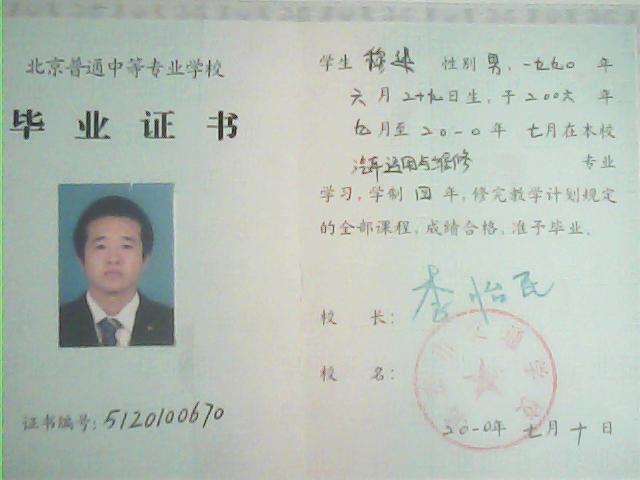 北京普通中等专业学校
毕业证书
证书编号：5120100670
学生 穆 性别 男，一九九〇 年
六 月 二十九日生，于 二〇〇六 年
九 月至 二〇一〇 年 七月在本校
汽车运用与维修 专业
学习，学制 四 年，修完教学计划规定
的全部课程，成绩合格，准予毕业。
校 长： 李怡民
校 名：
二〇一〇年 七 月 十 日